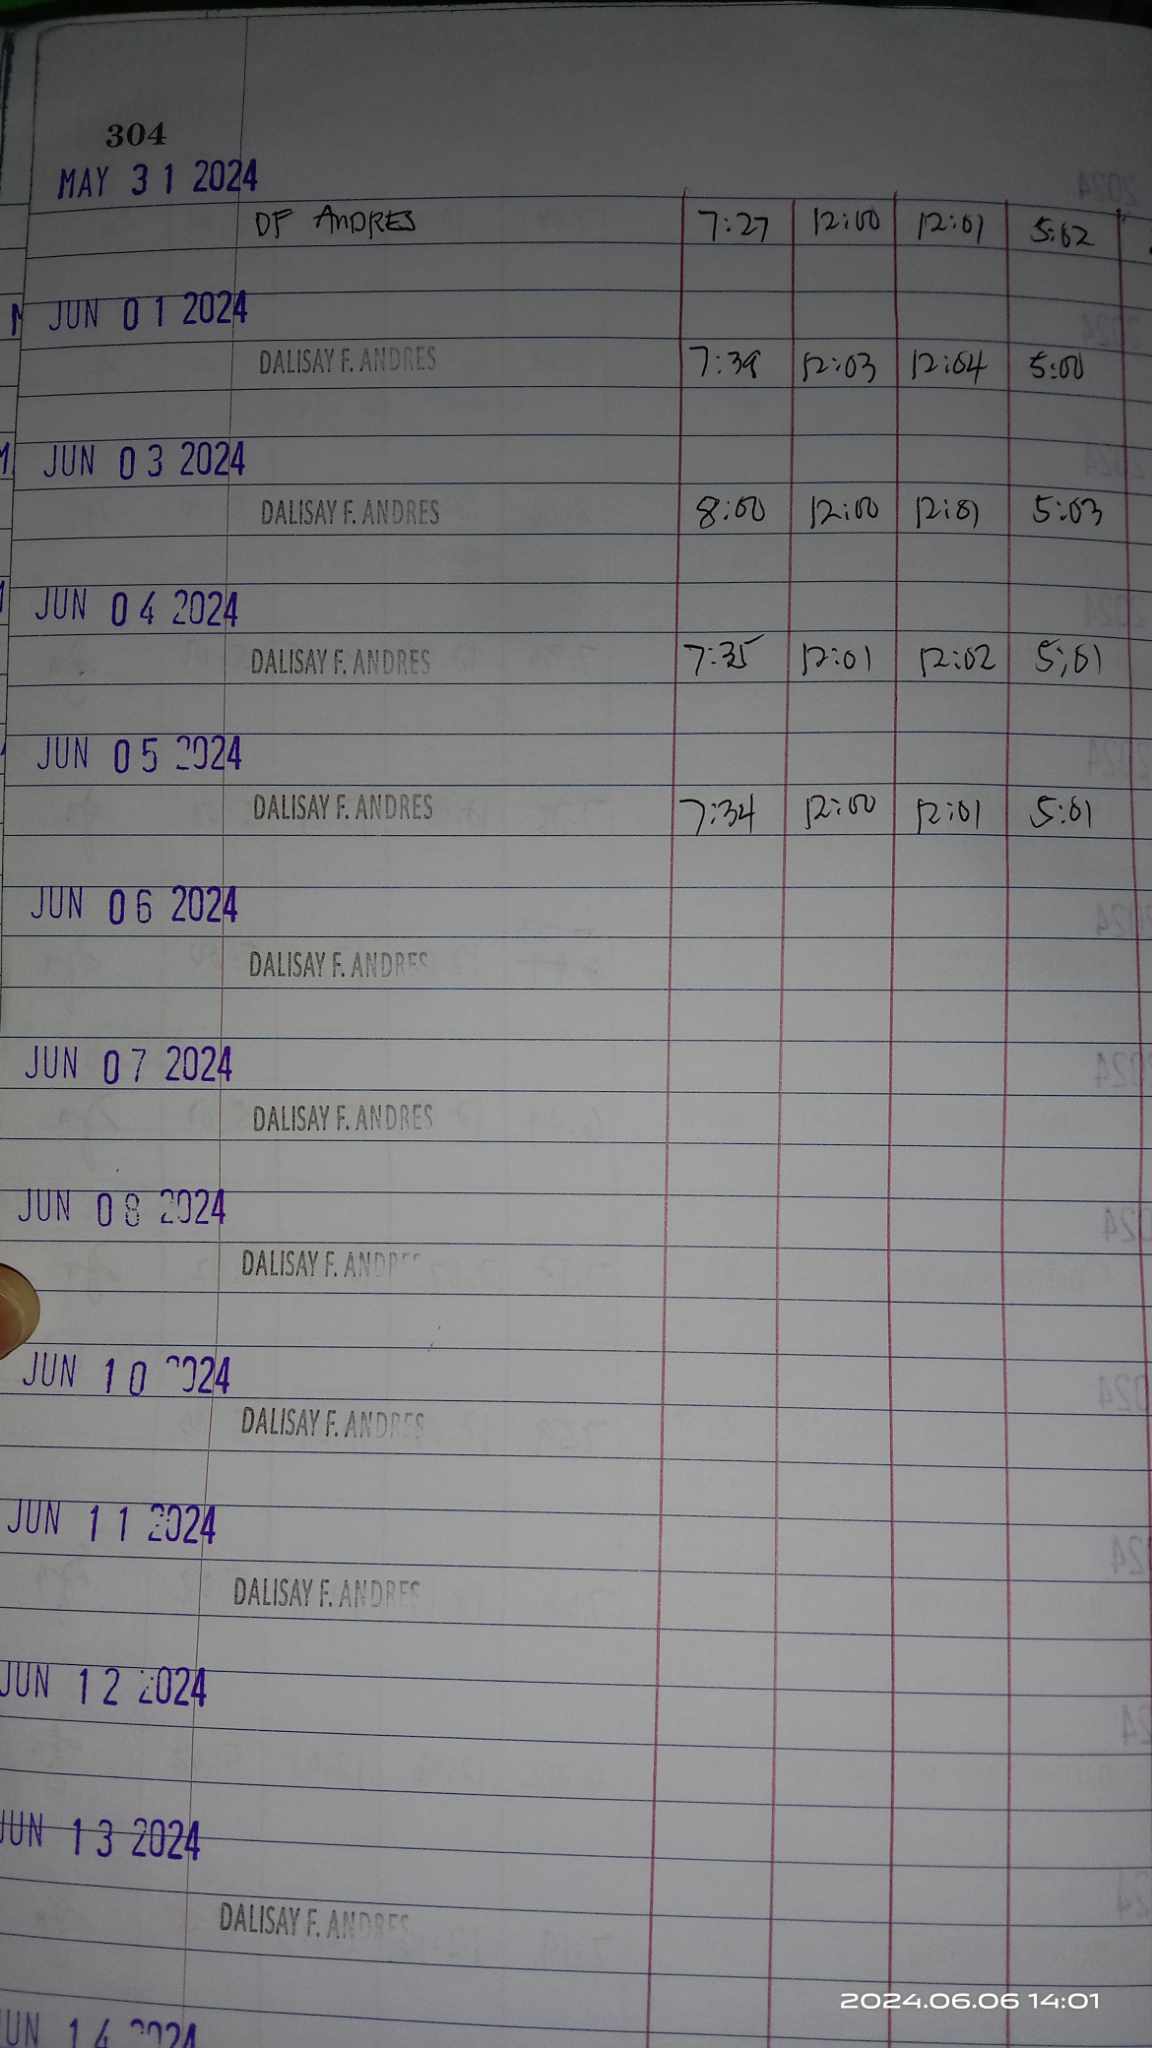 304
MAY 31 2024
DF ANDRES 7:27 12:00 12:01 5:02
JUN 01 2024
DALISAY F. ANDRES 7:39 12:03 12:04 5:00
JUN 03 2024
DALISAY F. ANDRES 8:00 12:00 12:01 5:03
JUN 04 2024
DALISAY F. ANDRES 7:35 12:01 12:02 5:01
JUN 05 2024
DALISAY F. ANDRES 7:34 12:00 12:01 5:01
JUN 06 2024
DALISAY F. ANDRES
JUN 07 2024
DALISAY F. ANDRES
JUN 08 2024
DALISAY F. ANDRES
JUN 10 2024
DALISAY F. ANDRES
JUN 11 2024
DALISAY F. ANDRES
JUN 12 2024
JUN 13 2024
DALISAY F. ANDRES
JUN 14 2024
2024.06.06 14:01